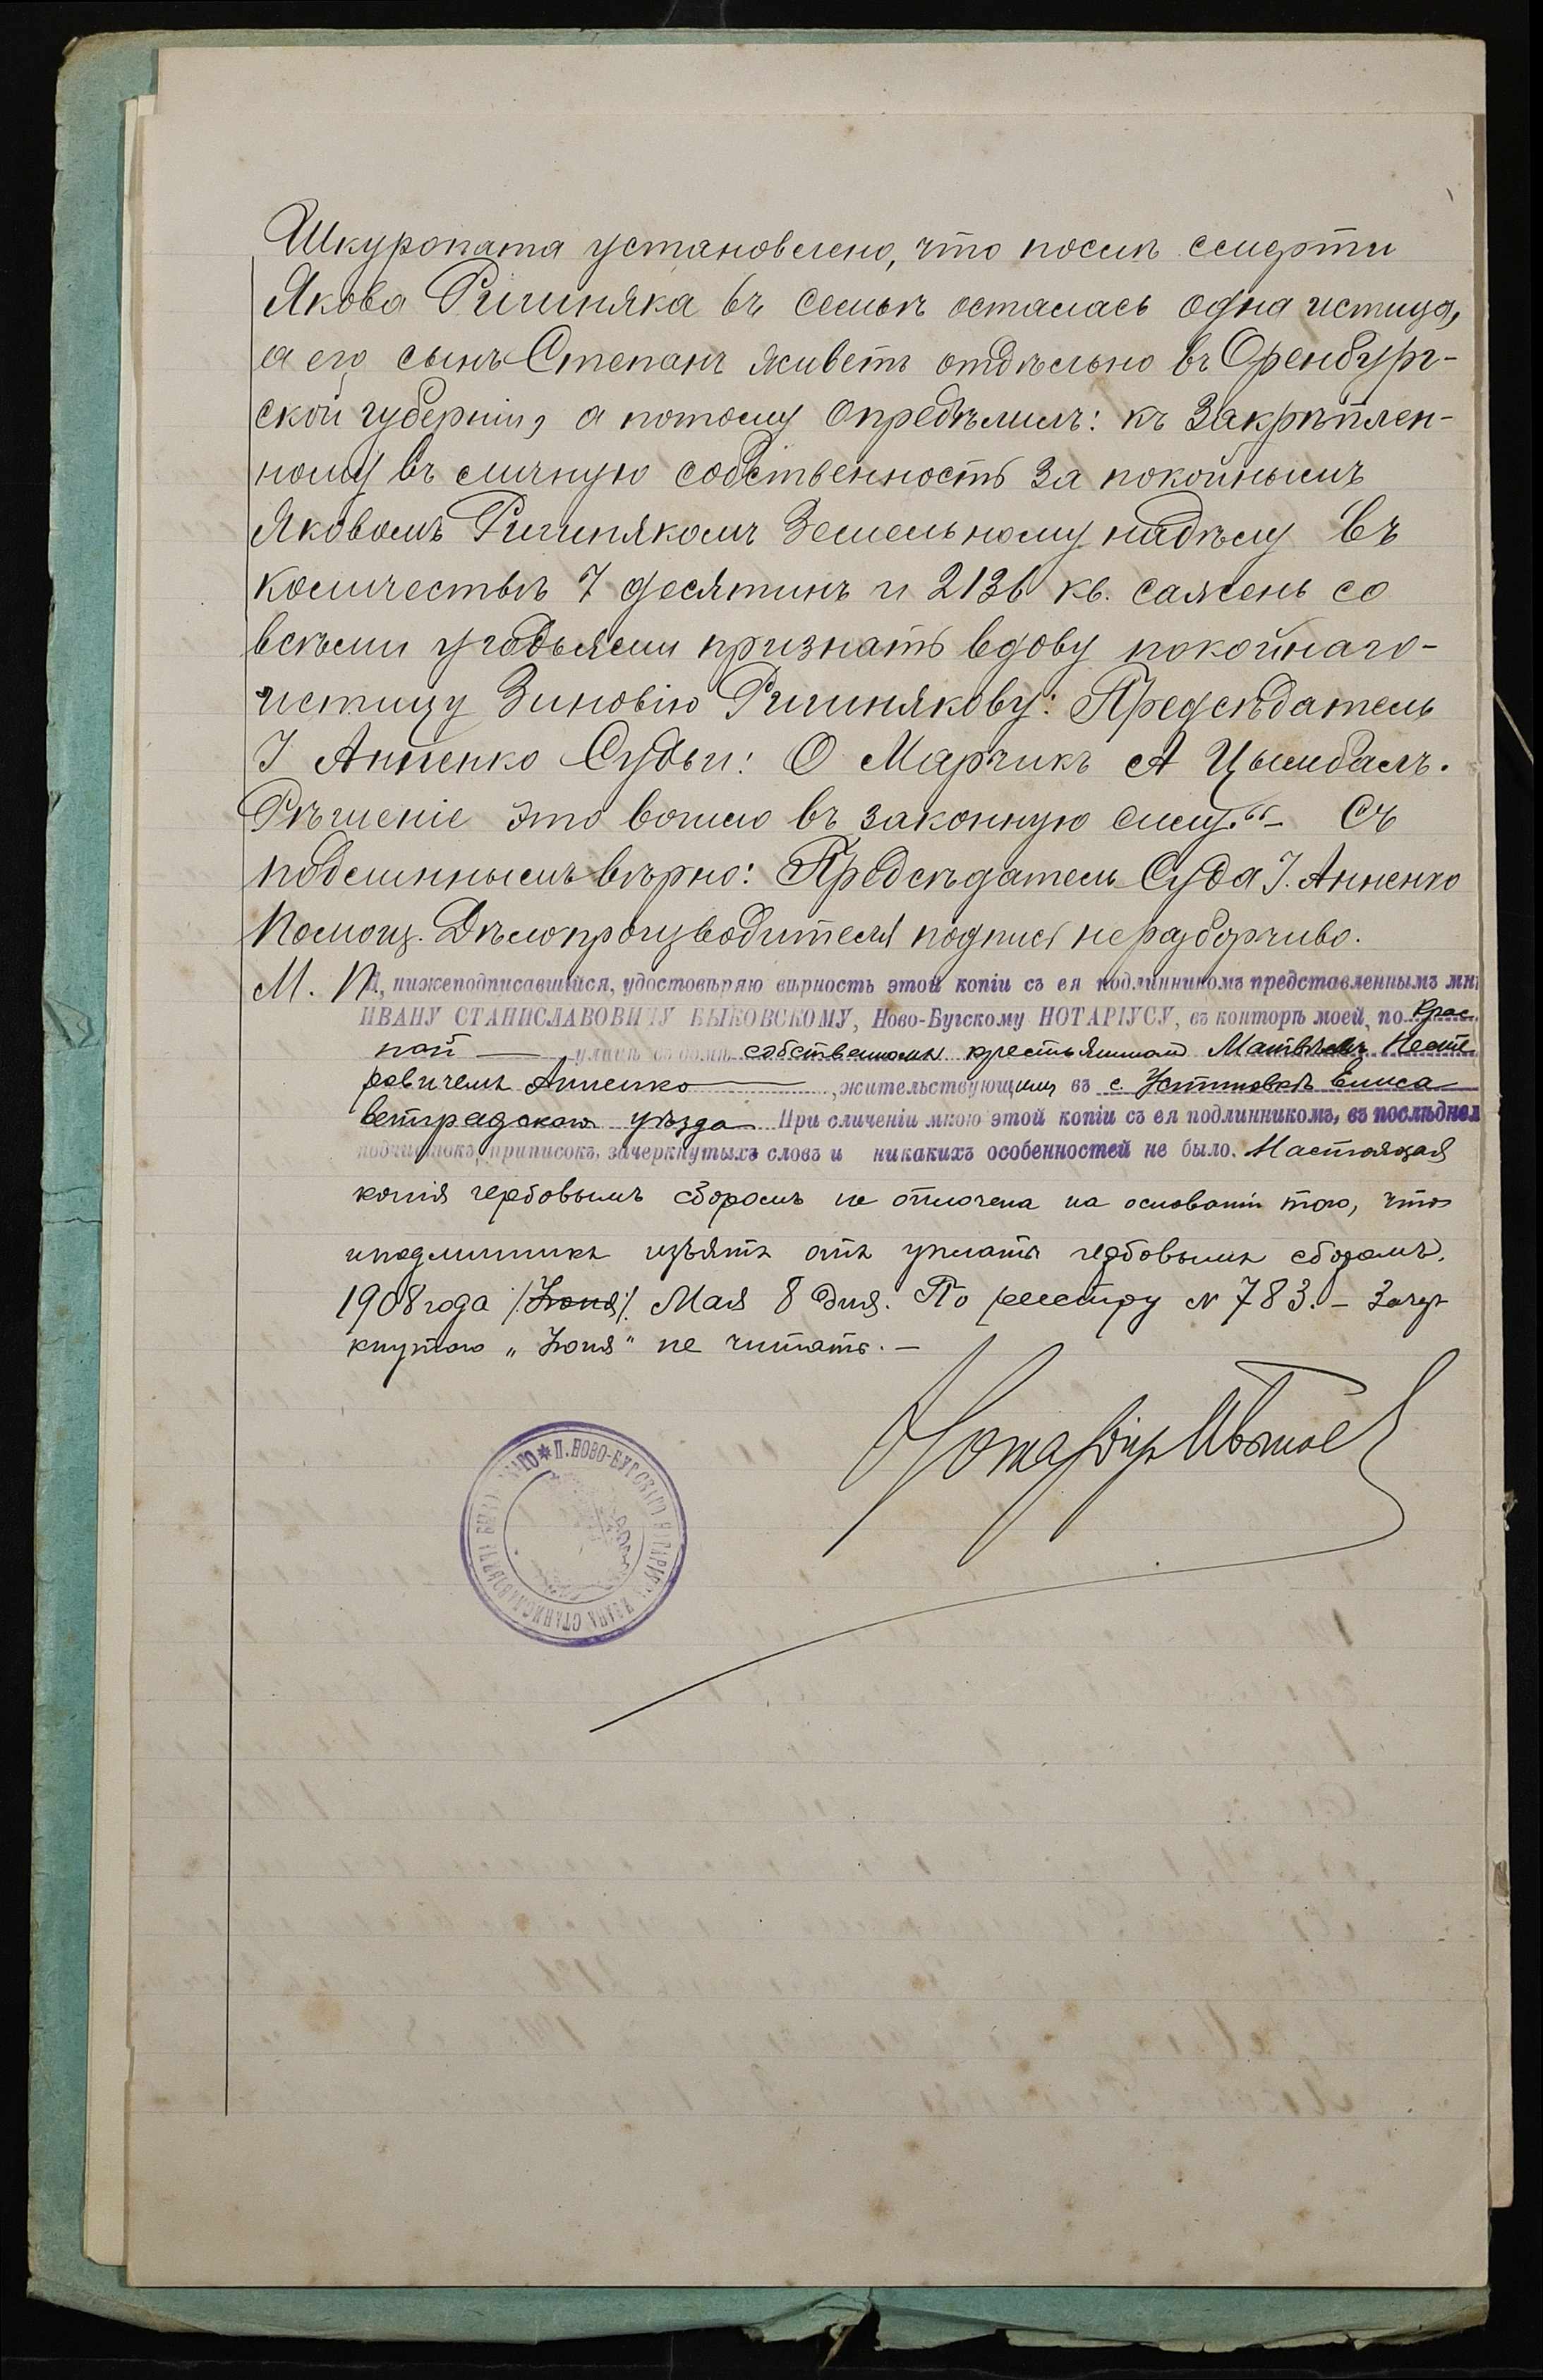 Шкуропата установлено, что послѣ смерти
Якова Ришняка въ семьѣ осталась одна истица,
а его сынъ Степанъ живетъ отдѣльно въ Оренбург-
ской губерніи, а потому опредѣлилъ: къ закрѣплен-
ному въ личную собственность за покойнымъ
Яковомъ Ришнякомъ земельному надѣлу въ
количествѣ 7 десятинъ и 2136 кв. сажень со
всѣми угодьями признать вдову покойнаго-
истицу Зиновію Ришнякову: Предсѣдатель
І Анненко Судьи: О Марчикъ А Цымбалъ.
Рѣшеніе это вошло въ законную силу."- Съ
подлиннымъ вѣрно: Предсѣдатель Суда І. Анненко
Помощ. Дѣлопроизводителя подпись неразборчиво.
М. П. Я, нижеподписавшійся, удостовѣряю вѣрность этой копіи съ ея подлинникомъ представленнымъ мнѣ
ИВАНУ СТАНИСЛАВОВИЧУ БЫКОВСКОМУ, Ново-Бугскому НОТАРІУСУ, въ конторѣ моей, по Крас
ной — улицѣ въ домѣ собственномъ крестьяниномъ Матвѣемъ Несте
ровичемъ Анненко —, жительствующимъ въ с. Устиновкѣ Елиса
ветградскаго уѣзда При сличеніи мною этой копіи съ ея подлинникомъ, въ послѣднем
подчистокъ, приписокъ, зачеркнутыхъ словъ и никакихъ особенностей не было. Настоящая
копія гербовымъ сборомъ не оплочена на основаніи того, что
и подлинникъ изъятъ отъ уплаты гербовымъ сборомъ.
1908 года /Іюня/. Мая 8 дня. По реестру № 783. - Зачер
кнутаго „Іюня" не читать. —
Нотаріусъ
* П. НОВО-БУГСКАГО НОТАРІУСА ИВАНА СТАНИСЛАВОВИЧА